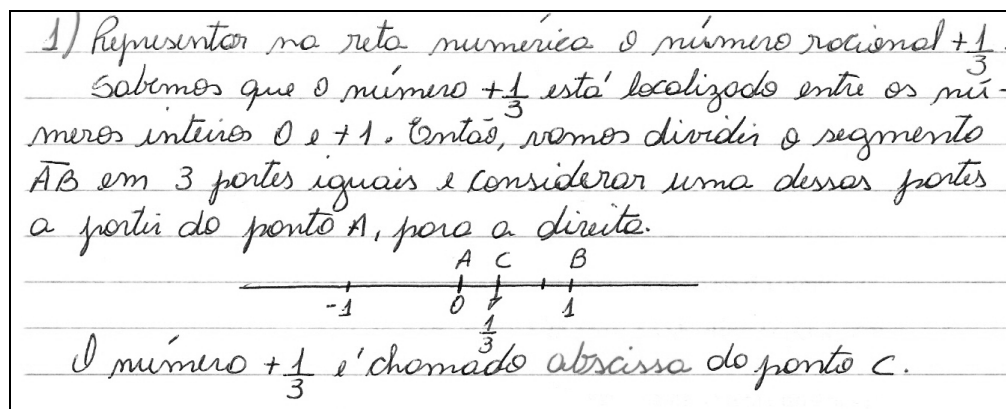 1) Representar na reta numérica o número racional +1/3.
Sabemos que o número +1/3 está localizado entre os nú-
meros inteiros 0 e +1. Então, vamos dividir o segmento
AB em 3 partes iguais e considerar uma dessas partes
a partir do ponto A, para a direita.
A C B
-1 0 1/3 1
O número +1/3 é chamado abscissa do ponto C.